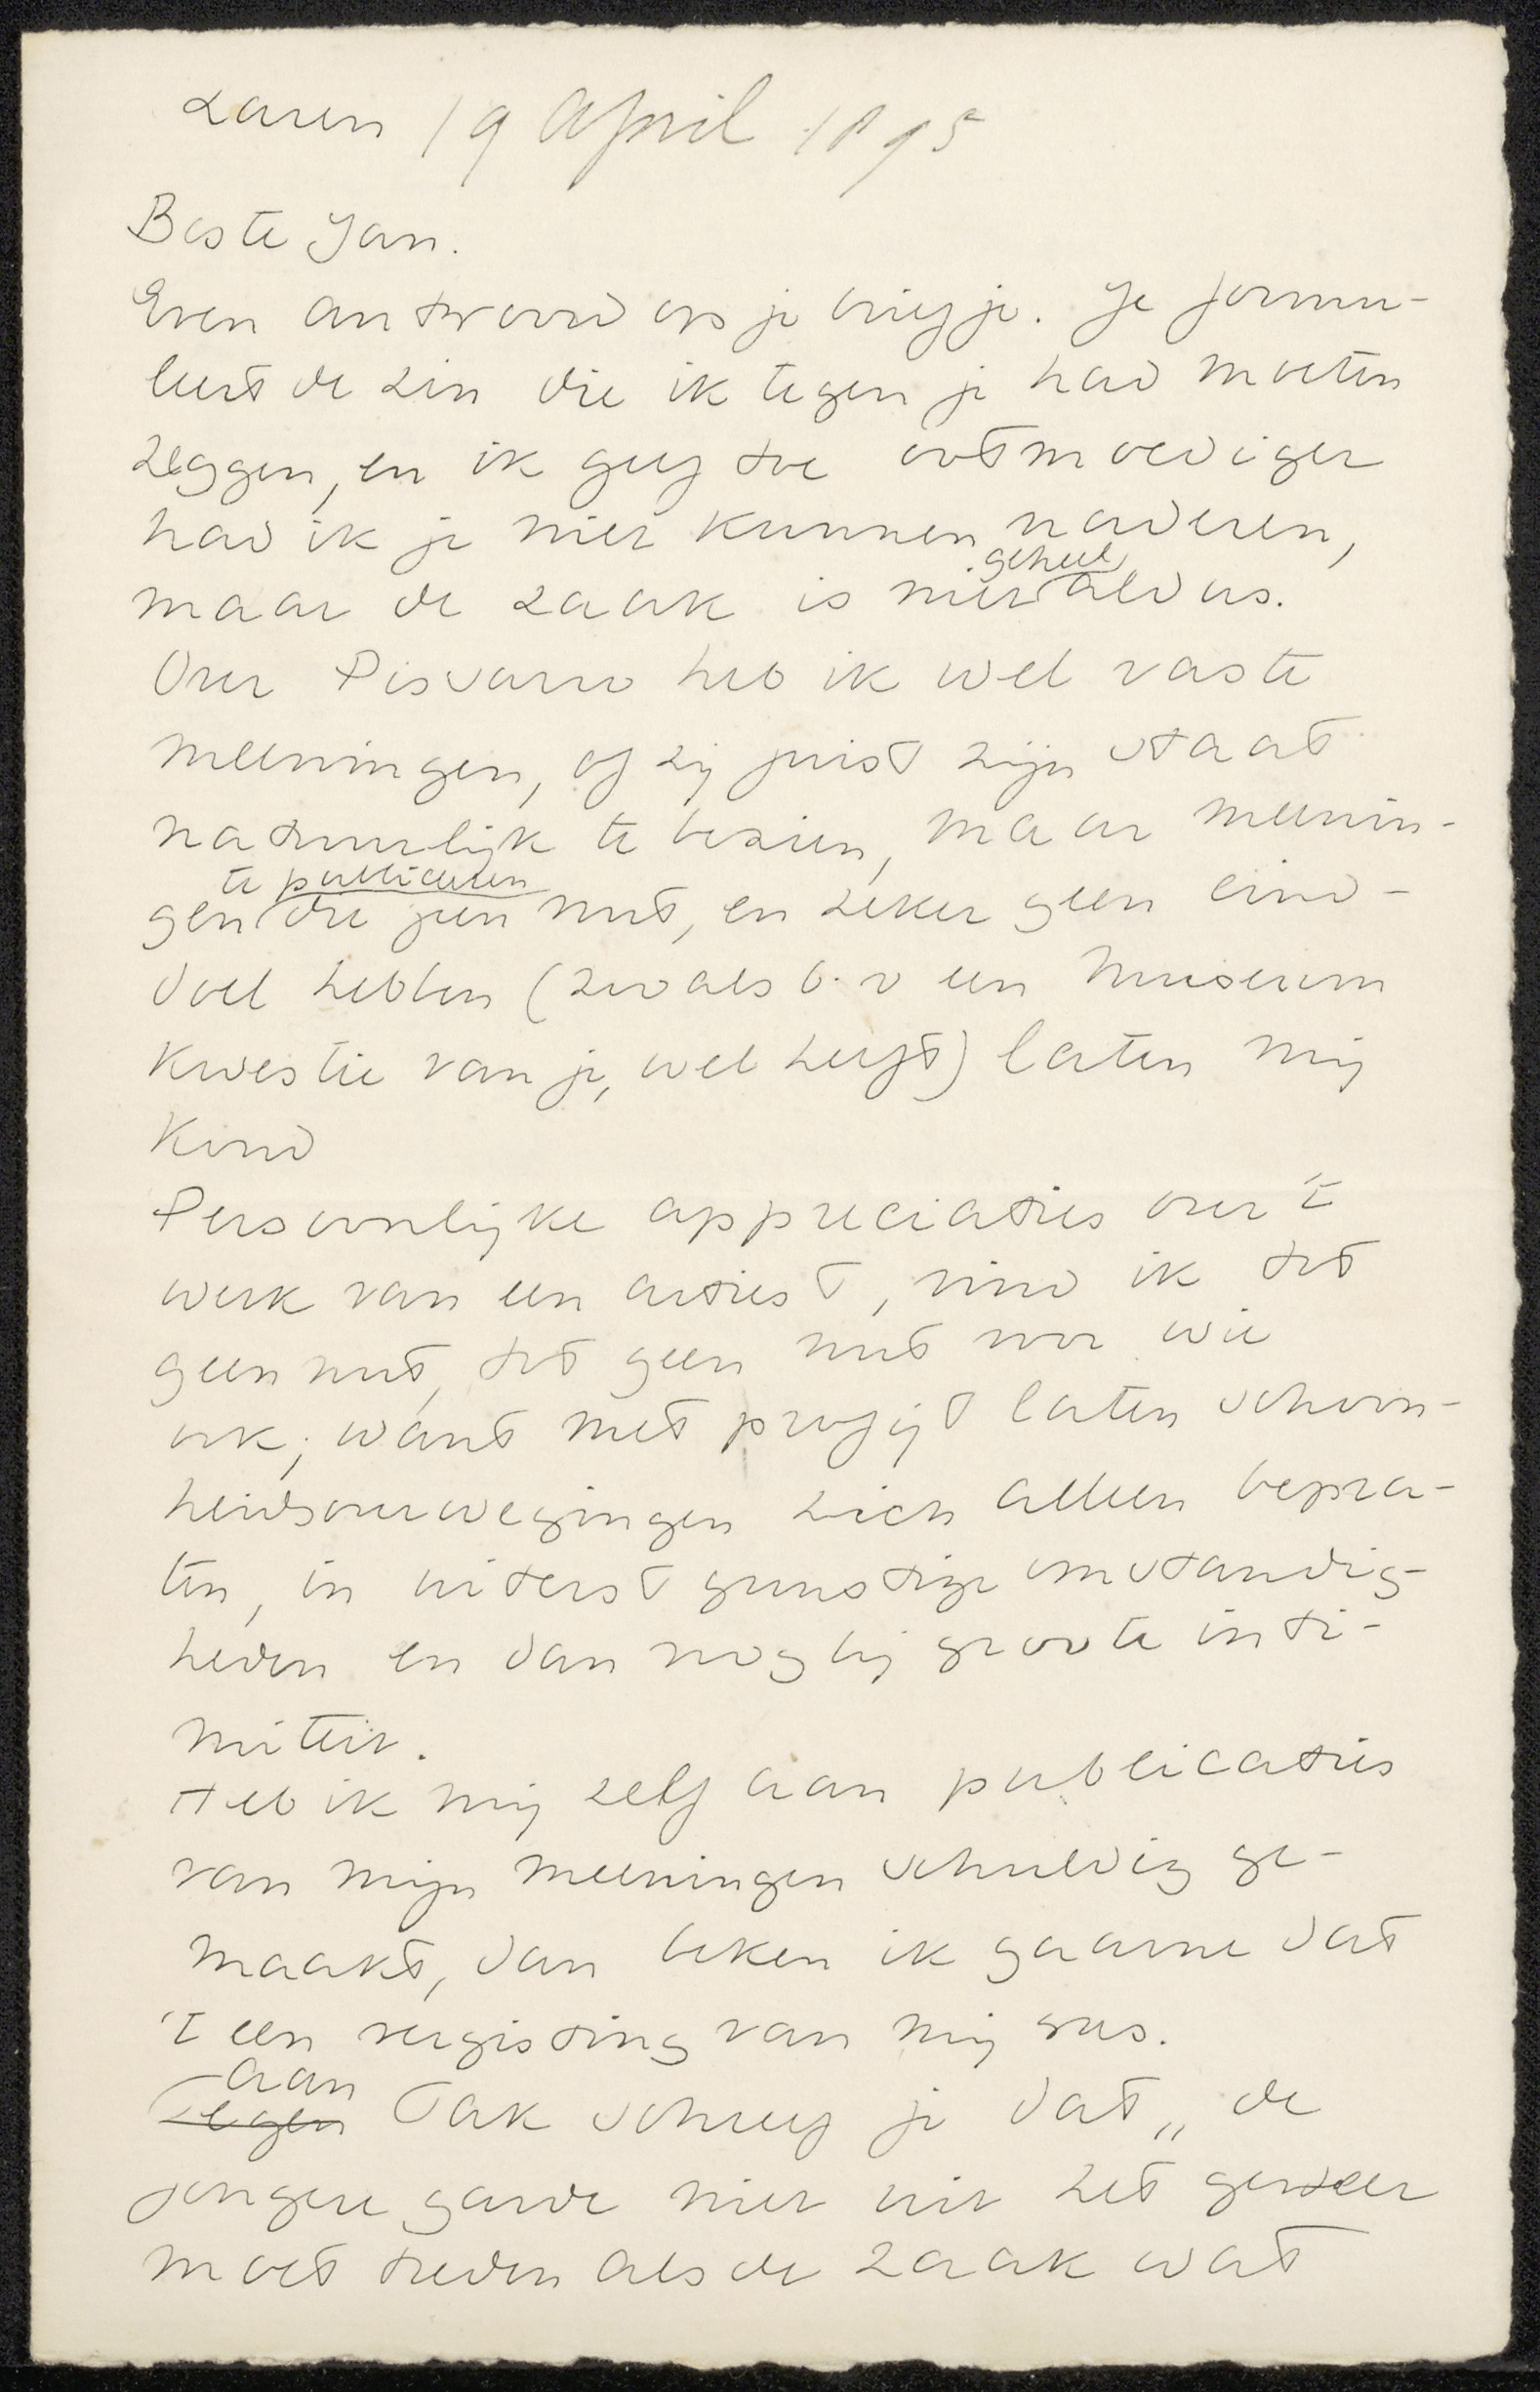 Laren 19 April 1895
Beste Jan.
Even antwoord op je briefje. Je formu-
leert de zin die ik tegen je had moeten
zeggen, en ik geef toe ootmoediger
had ik je niet kunnen naderen,
geheel
maar de zaak is niet aldus.
Over Pissarro heb ik wel vaste
meeningen, of zij juist zijn staat
natuurlijk te bezien, maar meenin-
te publiceeren
gen die geen nut, en zeker geen eind-
doel hebben (zooals b.v een Museum
kwestie van je, wel heeft) laten mij
koud
Persoonlijke appreciaties over 't
werk van een artiest, vind ik tot
geen nut, tot geen nut voor wie
ook; want met profijt laten schoon-
heidsoverwegingen zich alleen bepra-
ten, in uiterst gunstige omstandig-
heden en dan nog bij groote inti-
miteit.
Heb ik mij zelf aan publicaties
van mijn meeningen schuldig ge-
maakt, dan beken ik gaarne dat
't een vergissing van mij was.
aan
Tegen Tak schreef je dat „de
jongere garde niet uit het geweer
moet treden als de zaak wat